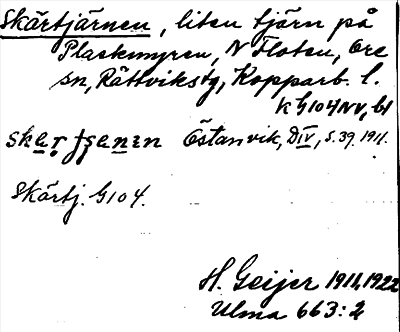 Skärtjärnen, liten tjärn på
Plackmyren, N Floten, Ore
sn, Rättvikstg, Kopparb. l.
K G104NV, b1
Östanvik, DIV, s. 39. 1911.
Skärtj. G104.
H. Geijer 1911, 1922
Ulma 663:2